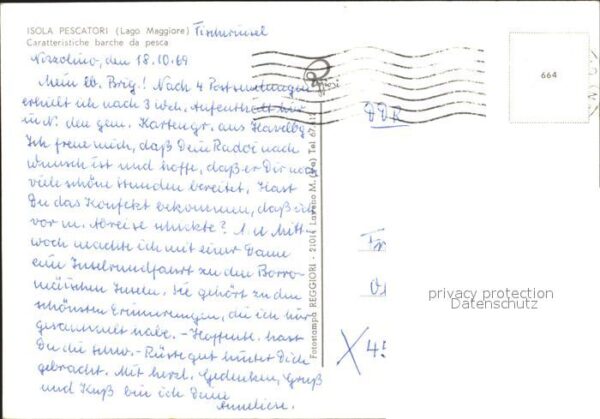 ISOLA PESCATORI (Lago Maggiore) Fischerinsel
Caratteristiche barche da pesca
Nizzolino, den 18.10.69
Mein lb. Brig.! Nach 4 Postsendungen
erhielt ich nach 3 Wch. Aufenthalt hier
in N. den gem. Kartengr. aus Havelbg.
Ich freue mich, daß Dein Radio nach
Wunsch ist und hoffe, daß er Dir noch
viele schöne Stunden bereitet. Hast
Du das Konfekt bekommen, daß ich
vor m. Abreise schickte? A. d. Mitt-
woch machte ich mit einer Dame
eine Inselrundfahrt zu den Borro-
mäischen Inseln. Sie gehört zu den
schönsten Erinnerungen, die ich hier
gesammelt habe. - Hoffentl. hast
Du die -Rüste gut hinter Dich
gebracht. Mit herzl. Gedenken, Gruß
und Kuß bin ich Deine
Anneliese.
Fotostampa REGGIORI - 21014 Laveno M. (Va) Tel 67
DDR
X 45
664
privacy protection
Datenschutz